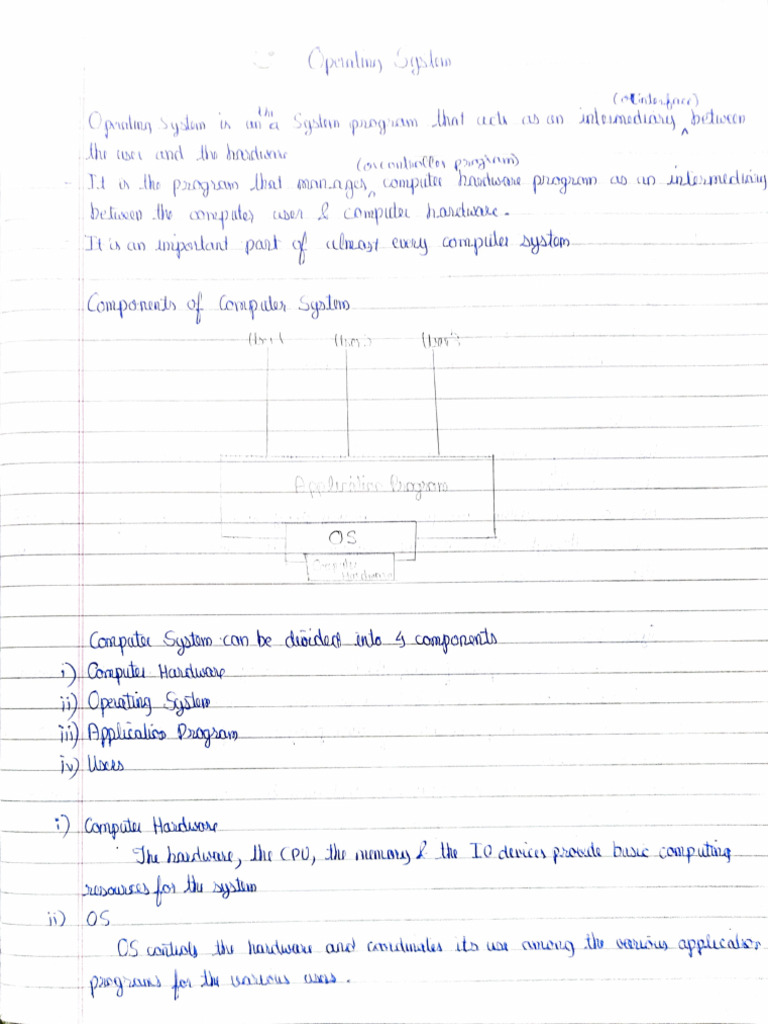 Operating System
(or interface)
Operating System is an the a System program that acts as an intermediary between
the user and the hardware
(or controller program)
- It is the program that manages computer hardware program as an intermediary
between the computer user & computer hardware.
It is an important part of almost every computer system
Components of Computer System
User 1 User 2 User 3
Application Program
OS
Computer
Hardware
Computer System can be divided into 4 components
i) Computer Hardware
ii) Operating System
iii) Application Program
iv) Users
i) Computer Hardware
The hardware, the CPU, the memory & the IO devices provide basic computing
resources for the system
ii) OS
OS controls the hardware and coordinates its use among the various application
programs for the various users.